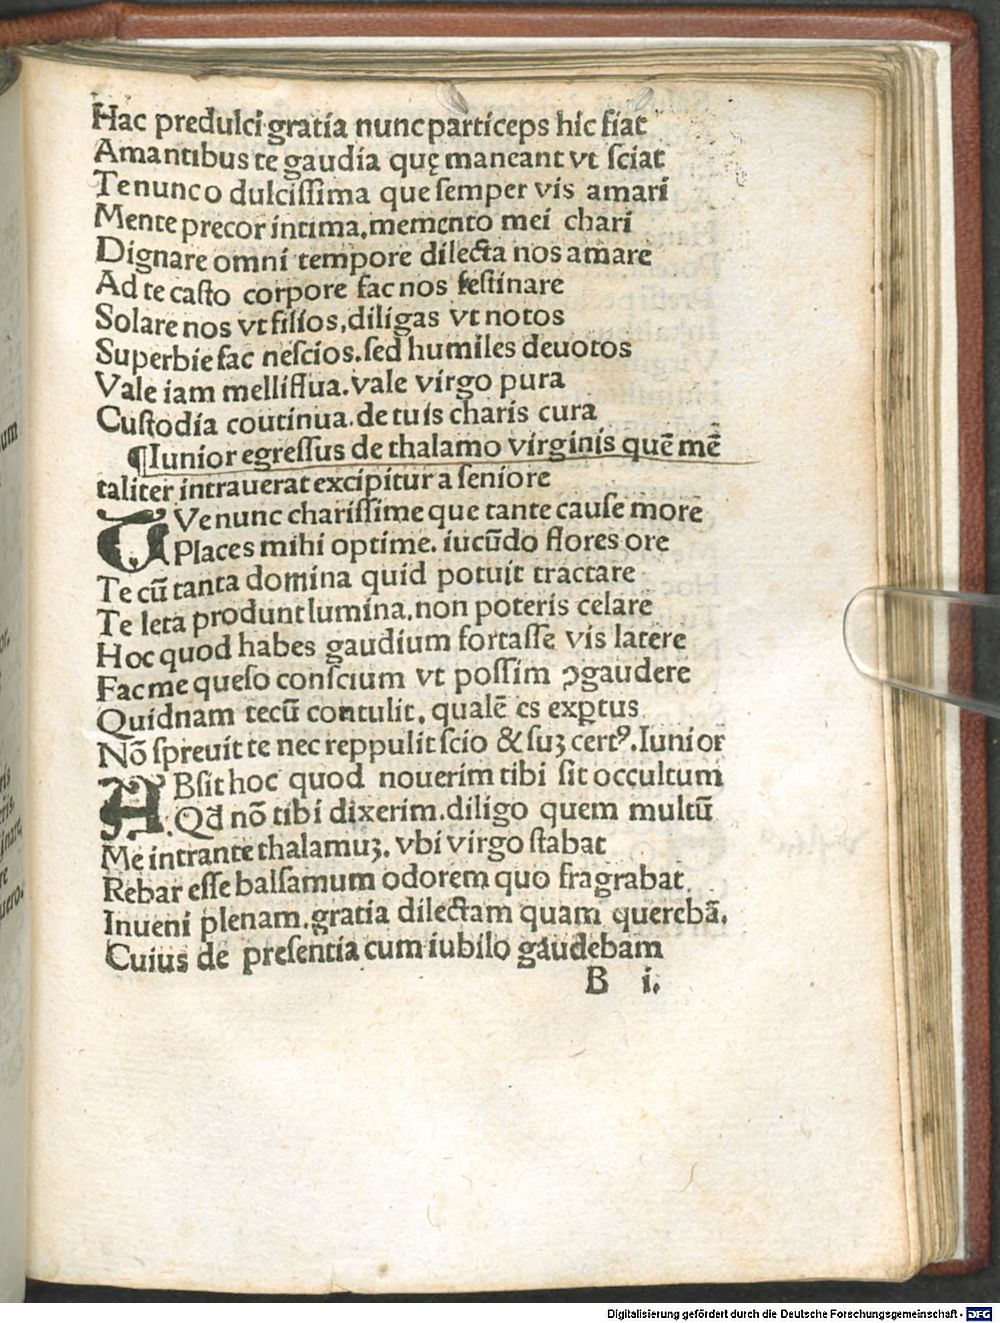 Hac predulci gratia nunc particeps hic fiat
Amantibus te gaudia quę maneant vt sciat
Te nunc o dulcissima que semper vis amari
Mente precor intima, memento mei chari
Dignare omni tempore dilecta nos amare
Ad te casto corpore fac nos festinare
Solare nos vt filios, diligas vt notos
Superbie fac nescios. sed humiles deuotos
Vale iam melliflua. vale virgo pura
Custodia coutinua. de tuis charis cura
¶Iunior egressus de thalamo virginis quē mē
taliter intrauerat excipitur a seniore
TVe nunc charissime que tante cause more
Places mihi optime. iucūdo flores ore
Te cū tanta domina quid potuit tractare
Te leta produnt lumina, non poteris celare
Hoc quod habes gaudium fortasse vis latere
Fac me queso conscium vt possim ꝯgaudere
Quidnam tecū contulit, qualē es exꝑtus
Nō spreuit te nec reppulit scio & suꝫ certꝰ. Iunior
ABsit hoc quod nouerim tibi sit occultum
Qđ nō tibi dixerim. diligo quem multū
Me intrante thalamuꝫ. vbi virgo stabat
Rebar esse balsamum odorem quo fragrabat
Inueni plenam. gratia dilectam quam querebā.
Cuius de presentia cum iubilo gaudebam
B i.
Digitalisierung gefördert durch die Deutsche Forschungsgemeinschaft - DFG